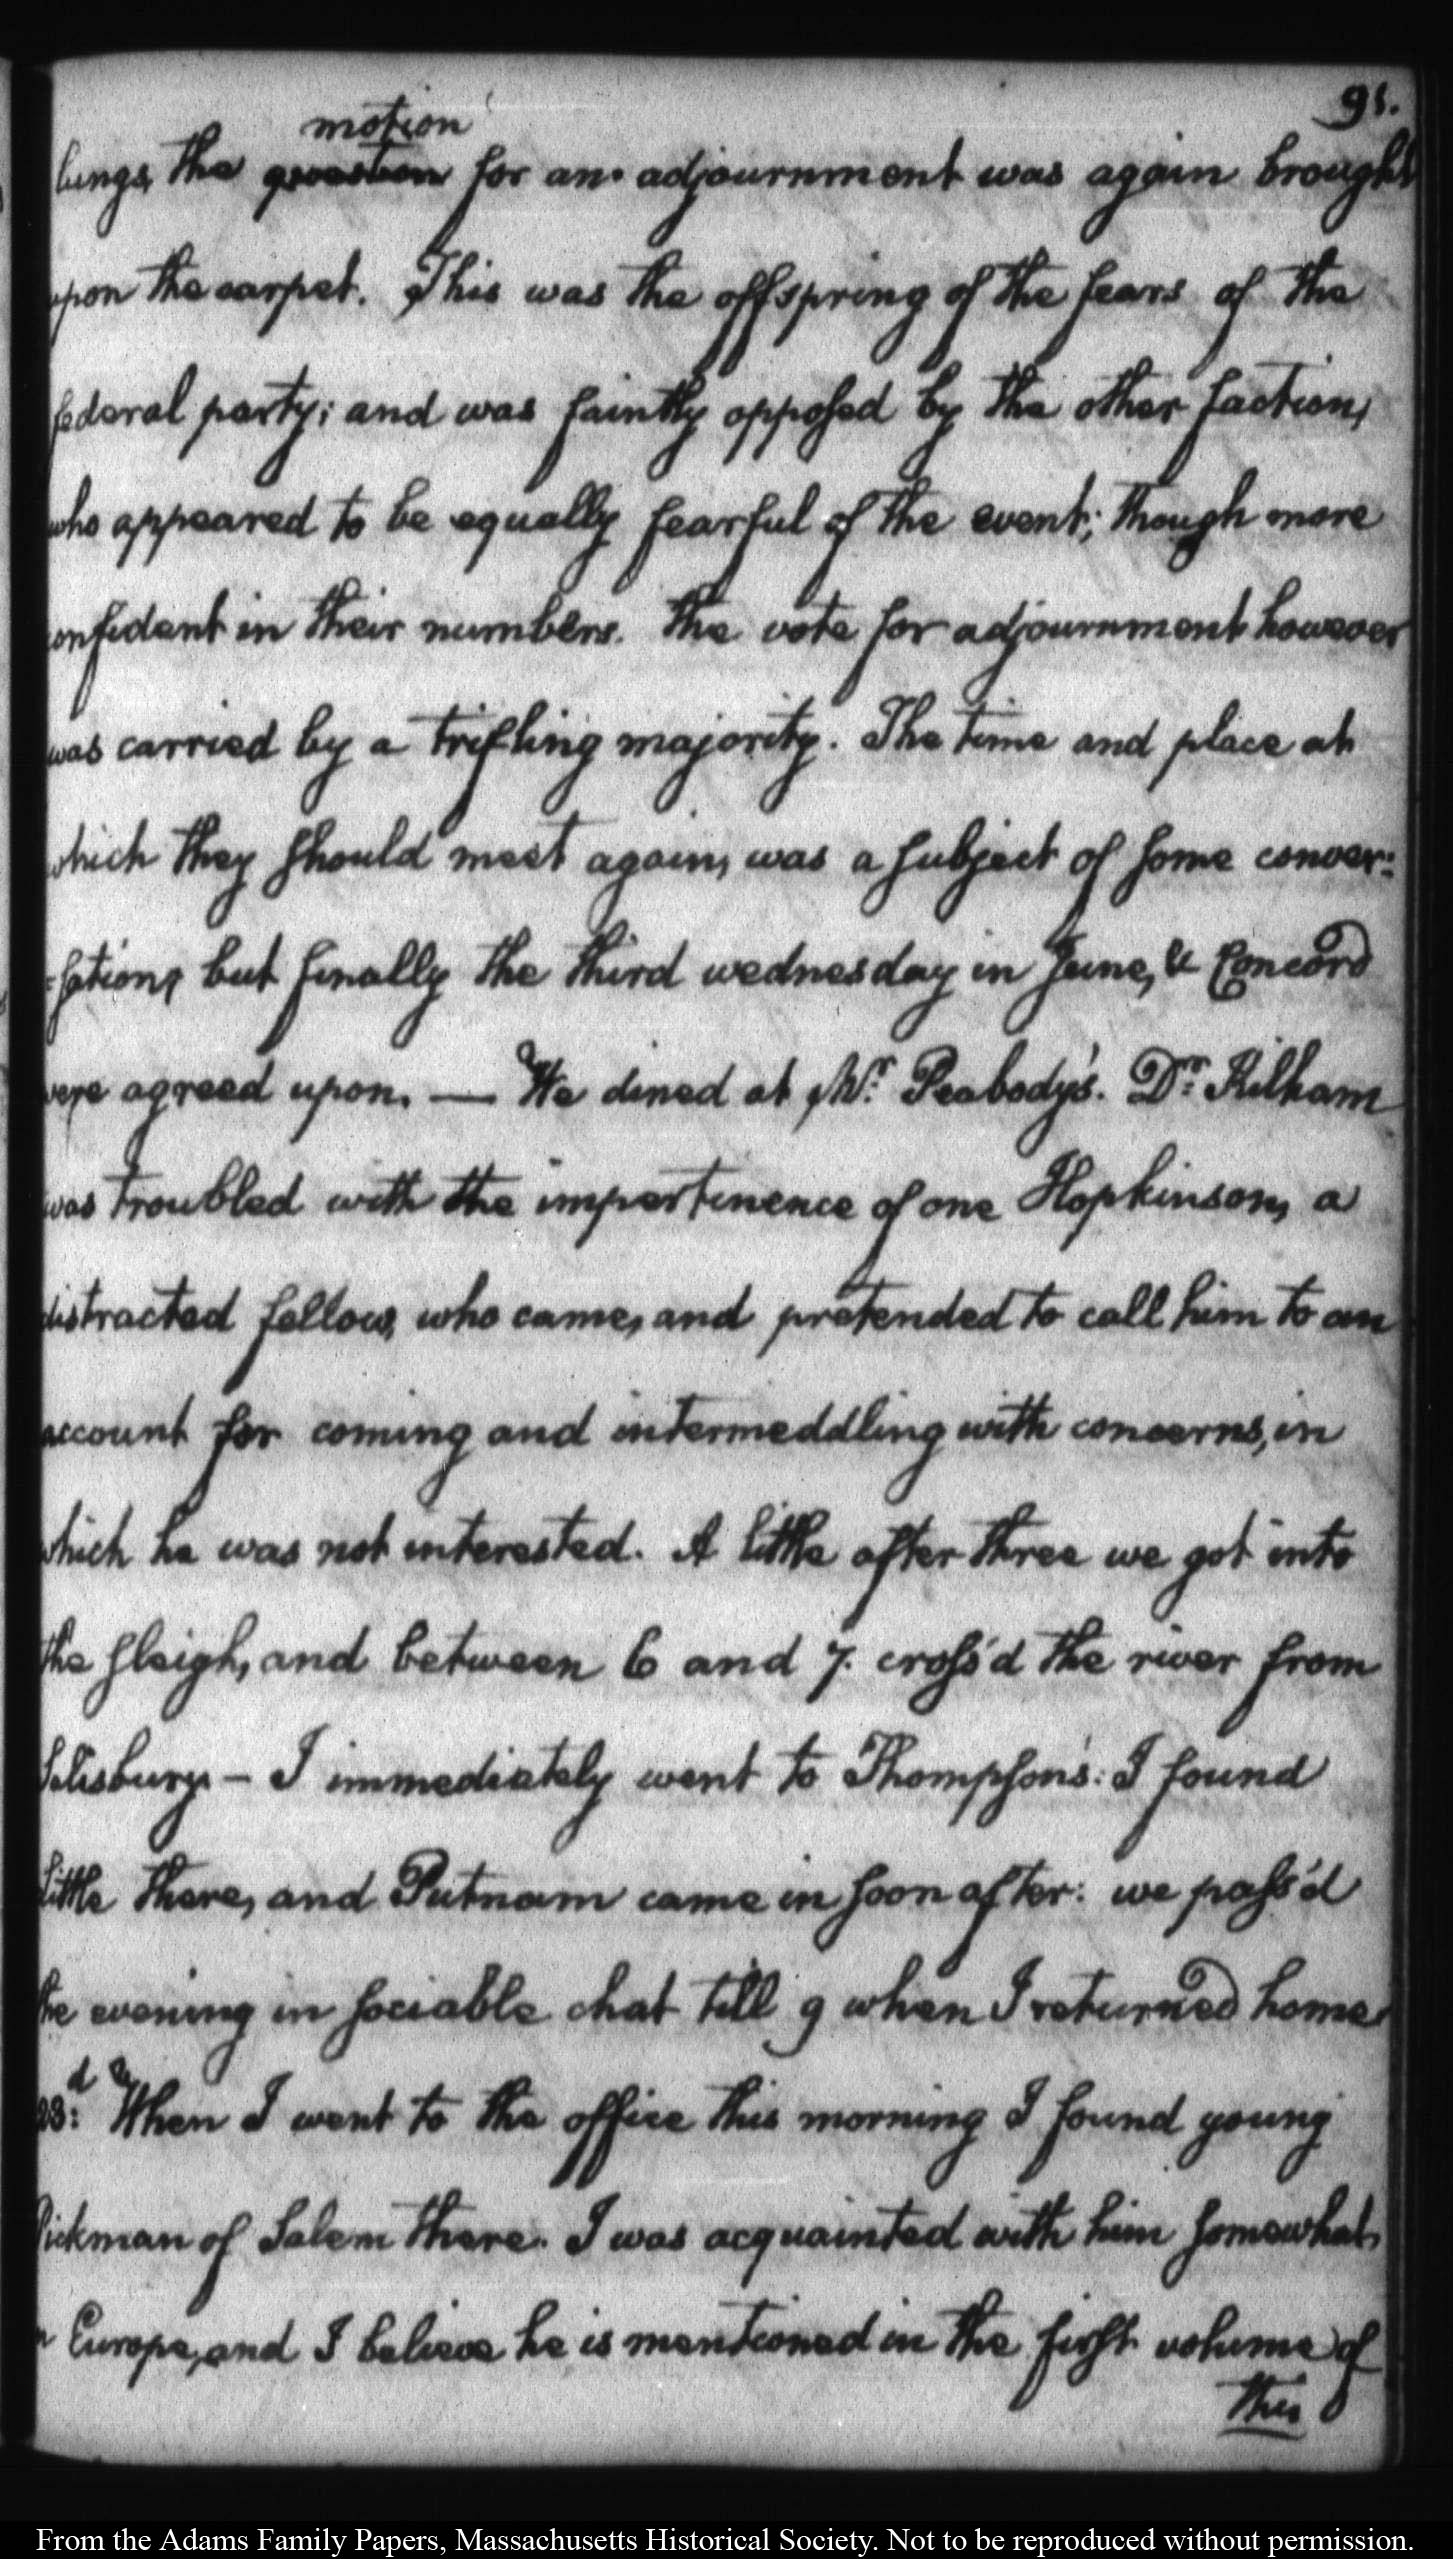 91.
motion
lungs, the question for an adjournment was again brought
upon the carpet. This was the offspring of the fears of the
federal party; and was faintly opposed by the other faction,
who appeared to be equally fearful of the event; though more
onfident in their numbers. The vote for adjournment however
was carried by a trifling majority. The time and place at
which they should meet again, was a subject of some conver:
:sation, but finally the third wednesday in June, & Concord
were agreed upon. — We dined at Mr. Peabody's. Dr. Kilham
was troubled with the impertinence of one Hopkinson, a
distracted fellow, who came, and pretended to call him to an
account for coming and intermeddling with concerns, in
which he was not interested. A little after three we got into
the sleigh, and between 6 and 7. cross'd the river from
Salisbury — I immediately went to Thompson's: I found
Little there, and Putnam came in soon after: we pass'd
the evening in sociable chat till 9 when I returned home.
23d: When I went to the office this morning I found young
Pickman of Salem there. I was acquainted with him somewhat,
n Europe, and I believe he is mentioned in the first volume of
this
From the Adams Family Papers, Massachusetts Historical Society. Not to be reproduced without permission.